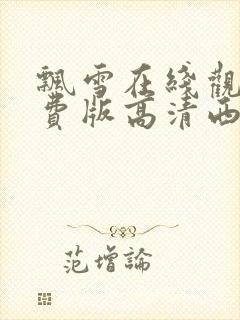 飄雪在綫觀
費版高清西
范增論